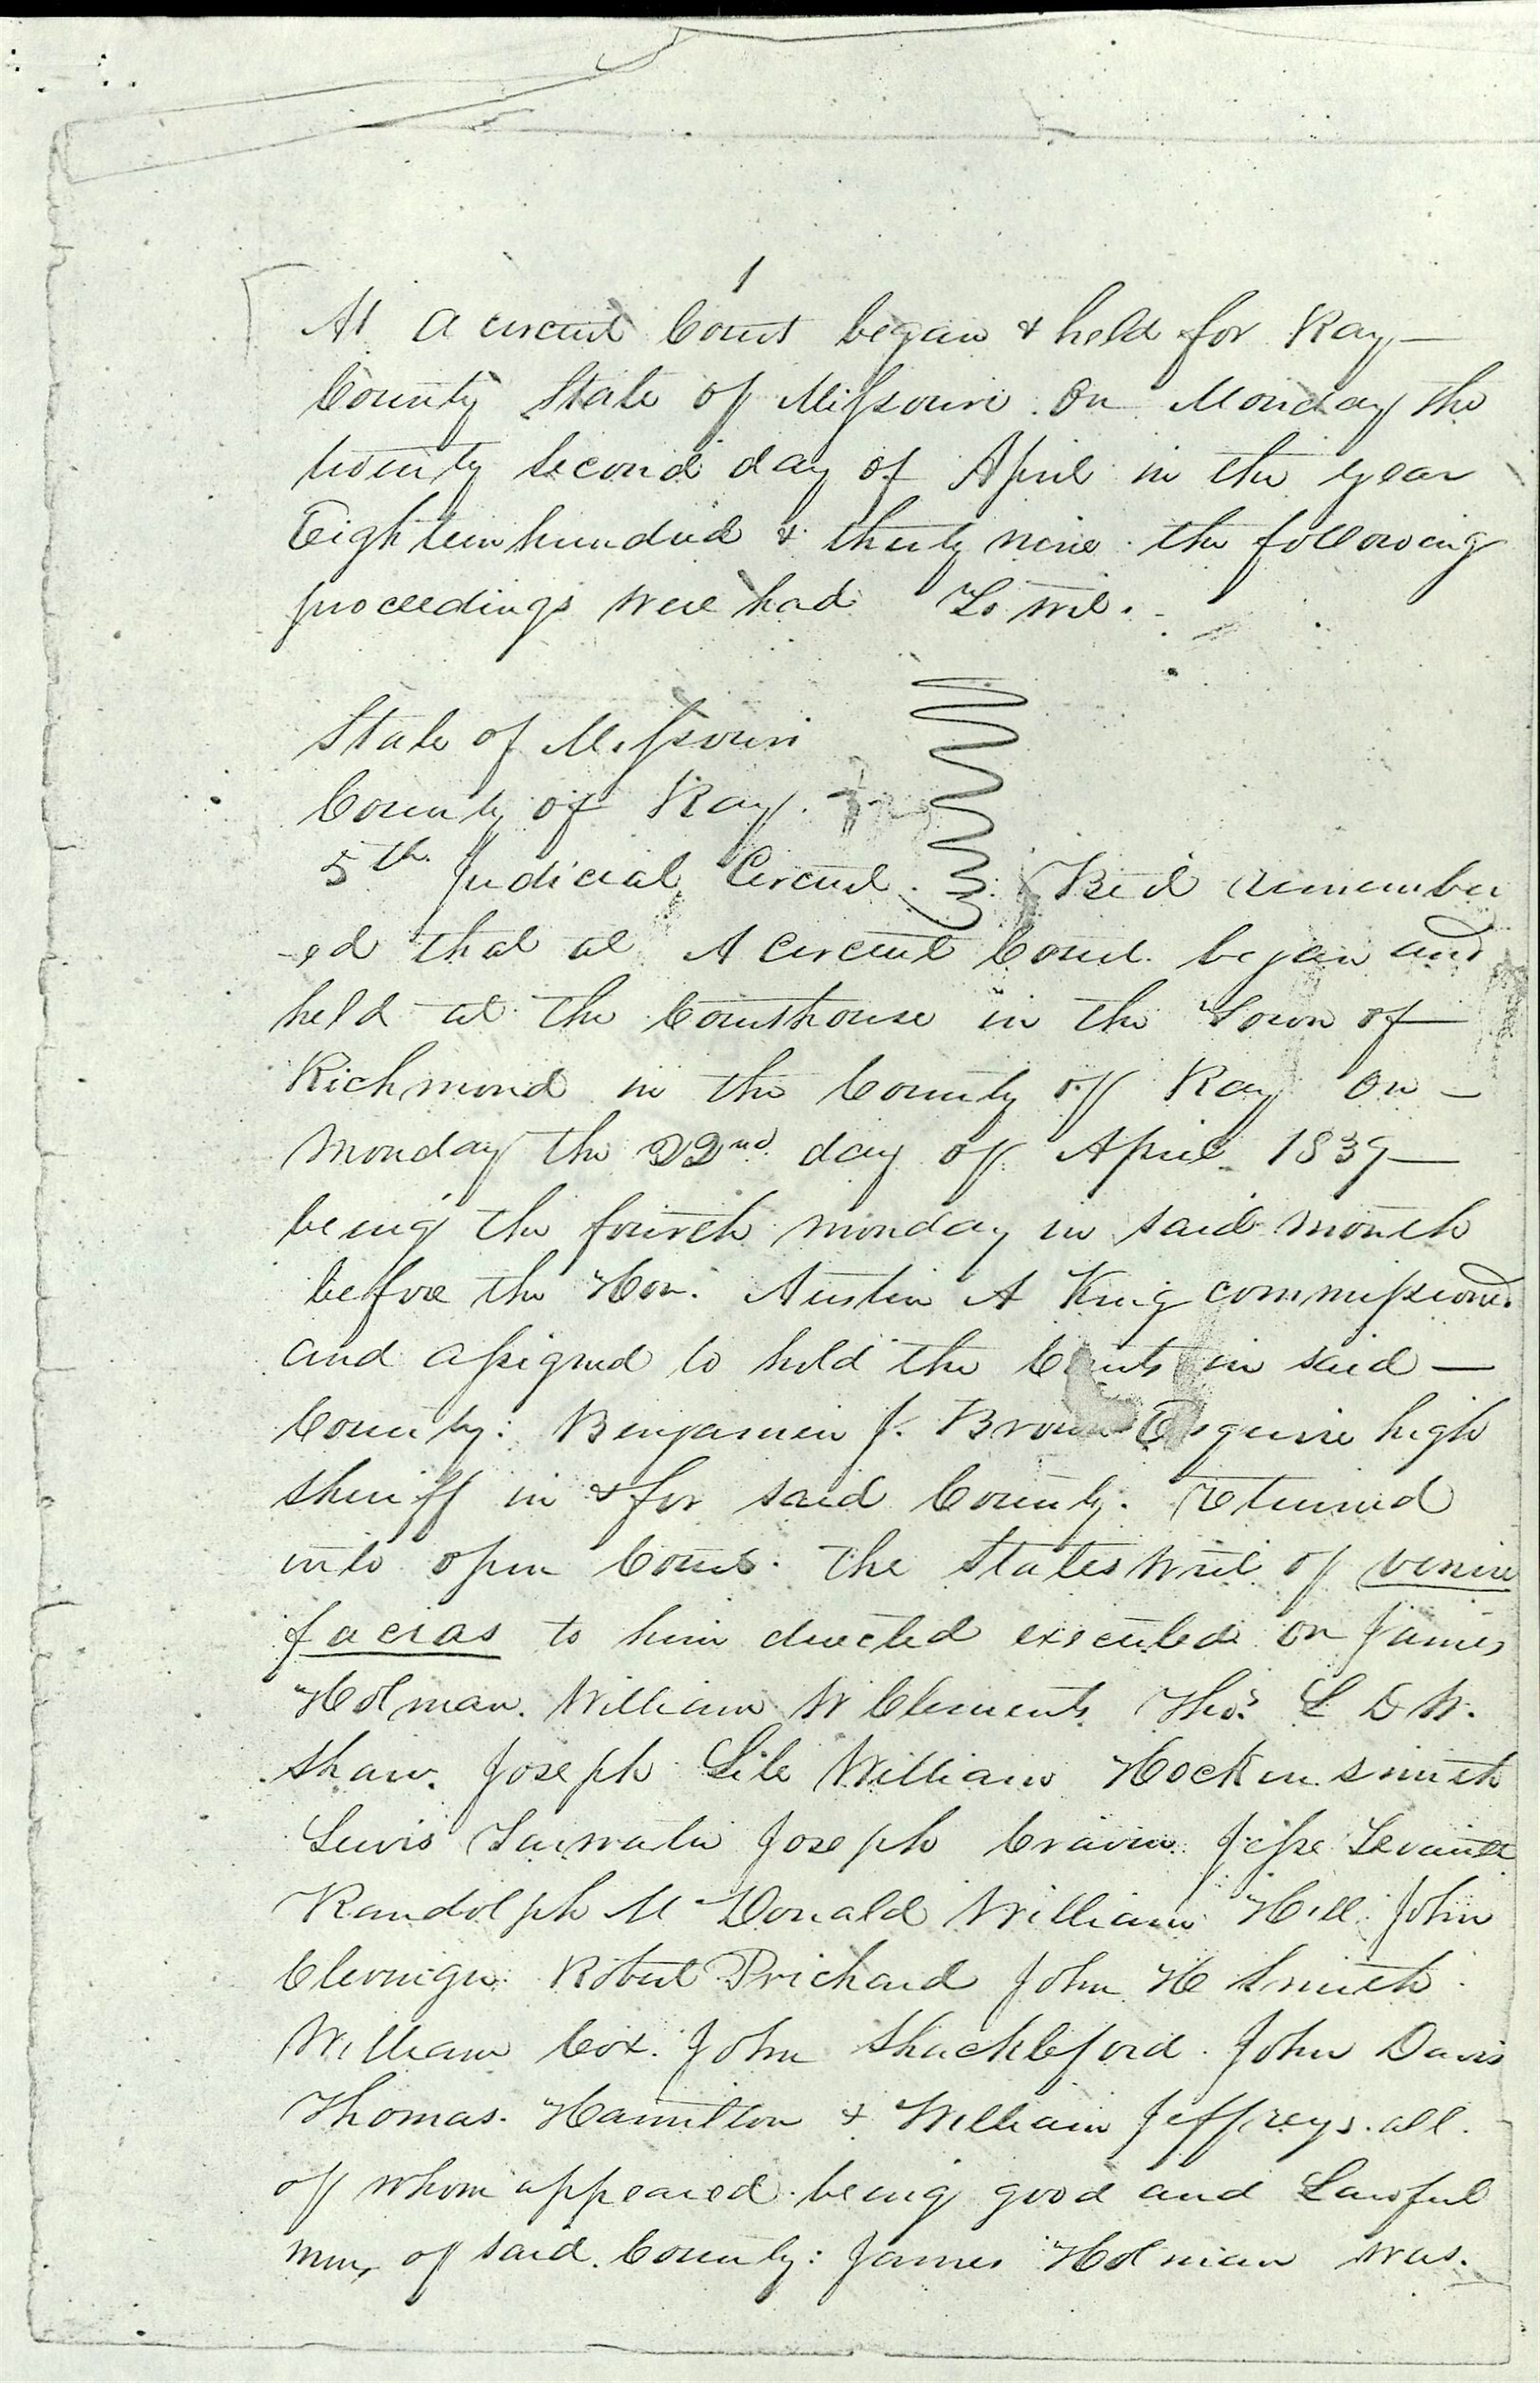 1
At a circuit Court began & held for Ray —
County State of Missouri on Monday the
twenty second day of April in the year
Eighteen hundred & thirty nine the following
proceedings were had To wit.
State of Missouri
County of Ray.
5th Judicial Circuit. Be it remember
-ed that at A Circuit Court began and
held at the Courthouse in the Town of —
Richmond in the County of Ray on —
Monday the 22nd day of April 1839 —
being the fourth monday in said month
before the Hon. Austin A King commissioned
and assigned to hold the Courts in said —
County: Benjamin J. Brown Esquire high
sheriff in & for said County. returned
into open Court. the States writ of venire
facias to him directed executed on James
Holman. William W Clements Thos. L D W.
Shaw. Joseph Lile William Hockensmith
Lewis Joseph Craven. Jesse
Randolph McDonald William Hill John
Clevenger. Robert Prichard John H Smith
William Cox. John Shackleford. John Davis
Thomas. Hamilton & William Jeffreys. all
of whom appeared being good and Lawful
men, of said County: James Holman was.